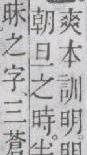 爽本訓明。
朝旦之時。
昧之字、三蒼